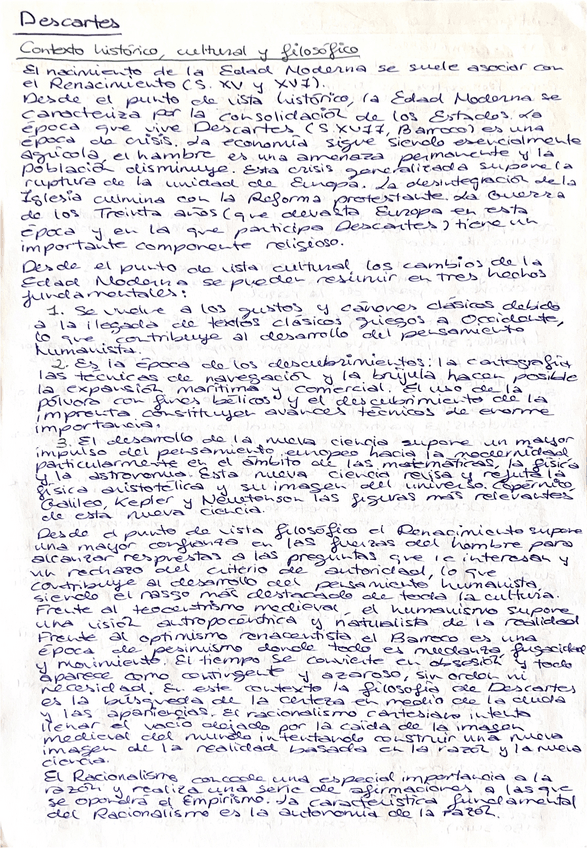 Descartes
Contexto histórico, cultural y filosófico
El nacimiento de la Edad Moderna se suele asociar con
el Renacimiento (S. XV y XVI).
Desde el punto de vista histórico, la Edad Moderna se
caracteriza por la consolidación de los Estados. La
época que vive Descartes (S.XVII, Barroco) es una
época de crisis. La economía sigue siendo esencialmente
agrícola, el hambre es una amenaza permanente y la
población disminuye. Esta crisis generalizada supone la
ruptura de la unidad de Europa. La desintegración de la
Iglesia culmina con la Reforma protestante. La Guerra
de los Treinta años (que devasta Europa en esta
época y en la que participa Descartes) tiene un
importante componente religioso.
Desde el punto de vista cultural los cambios de la
Edad Moderna se pueden resumir en tres hechos
fundamentales:
1. Se vuelve a los gustos y cánones clásicos debido
a la llegada de textos clásicos griegos a Occidente,
lo que contribuye al desarrollo del pensamiento
humanista.
2. Es la época de los descubrimientos: la cartografía,
las técnicas de navegación y la brújula hacen posible
la expansión marítima y comercial. El uso de la
pólvora con fines bélicos y el descubrimiento de la
imprenta constituyen avances técnicos de enorme
importancia.
3. El desarrollo de la nueva ciencia supone un mayor
impulso del pensamiento europeo hacia la modernidad
particularmente en el ámbito de las matemáticas, la física
y la astronomía. Esta nueva ciencia revisa y refuta la
física aristotélica y su imagen del universo. Copérnico,
Galileo, Kepler y Newton son las figuras más relevantes
de esta nueva ciencia.
Desde el punto de vista filosófico el Renacimiento supone
una mayor confianza en las fuerzas del hombre para
alcanzar respuestas a las preguntas que le interesan y
un rechazo del criterio de autoridad, lo que
contribuye al desarrollo del pensamiento humanista,
siendo el rasgo más destacado de toda la cultura.
Frente al teocentrismo medieval, el humanismo supone
una visión antropocéntrica y naturalista de la realidad
Frente al optimismo renacentista el Barroco es una
época de pesimismo donde todo es mudanza, fugacidad
y movimiento. El tiempo se convierte en obsesión y todo
aparece como contingente y azaroso, sin orden ni
necesidad. En este contexto la filosofía de Descartes
es la búsqueda de la certeza en medio de la duda
y las apariencias. El racionalismo cartesiano intenta
llenar el vacío dejado por la caída de la imagen
medieval del mundo intentando construir una nueva
imagen de la realidad basada en la razón y la nueva
ciencia.
El Racionalismo concede una especial importancia a la
razón y realiza una serie de afirmaciones a las que
se opondrá el Empirismo. La característica fundamental
del Racionalismo es la autonomía de la razón.